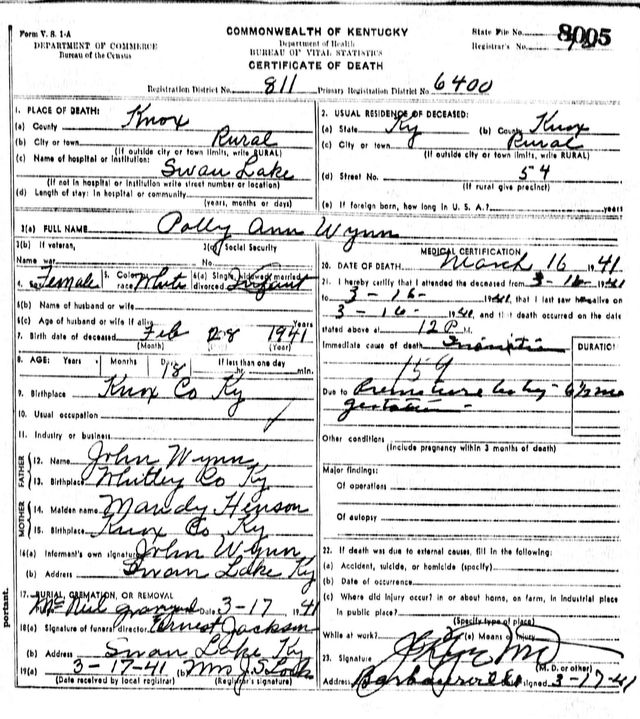 Form V. S. 1-A
DEPARTMENT OF COMMERCE
Bureau of the Census
COMMONWEALTH OF KENTUCKY
Department of Health
BUREAU OF VITAL STATISTICS
CERTIFICATE OF DEATH
State File No. 8005
Registrar's No.
Registration District No. 811 Primary Registration District No. 6400
1. PLACE OF DEATH:
(a) County Knox
(b) City or town Rural
(If outside city or town limits, write RURAL)
(c) Name of hospital or institution:
Swan Lake
(If not in hospital or institution write street number or location)
(d) Length of stay: In hospital or community
(years, months or days)
2. USUAL RESIDENCE OF DECEASED:
(a) State Ky (b) County Knox
(c) City or town Rural
(If outside city or town limits, write RURAL)
(d) Street No. 54
(If rural give precinct)
(e) If foreign born, how long in U. S. A.? years
3(a) FULL NAME Polly Ann Wynn
3(b) If veteran,
Name war
3(c) Social Security
No.
4. Sex Female 5. Color or race White 6(a) Single, widowed, married, divorced Infant
6(b) Name of husband or wife
6(c) Age of husband or wife if alive Years
7. Birth date of deceased Feb 28 1941
(Month) (Day) (Year)
8. AGE: Years Months Days 18 If less than one day
hr. min.
9. Birthplace Knox Co Ky
10. Usual occupation
11. Industry or business
FATHER
12. Name John Wynn
13. Birthplace Whitley Co Ky
MOTHER
14. Maiden name Mandy Henson
15. Birthplace Knox Co Ky
16(a) Informant's own signature John Wynn
(b) Address Swan Lake Ky
17. BURIAL, CREMATION, OR REMOVAL
McNeil graveyard Date 3-17 1941
18(a) Signature of funeral director Ernest Jackson
(b) Address Swan Lake Ky
19(a) 3-17-41 (b) Mrs J. S. Lock
(Date received by local registrar) (Registrar's signature)
MEDICAL CERTIFICATION
20. DATE OF DEATH March 16 1941
21. I hereby certify that I attended the deceased from 3-16-1941
to 3-16- 1941, that I last saw her alive on
3-16- 1941, and that death occurred on the date
stated above at 12 P M.
Immediate cause of death Inanition
DURATION
159
Due to Prematurity 6½ mo
gestation
Other conditions
(Include pregnancy within 3 months of death)
Major findings:
Of operations
Of autopsy
22. If death was due to external causes, fill in the following:
(a) Accident, suicide, or homicide (specify)
(b) Date of occurrence
(c) Where did injury occur? in or about home, on farm, in industrial place
in public place?
(Specify type of place)
While at work? (e) Means of injury
23. Signature
(M. D. or other)
Address Barbourville Date signed 3-17-41
portant.